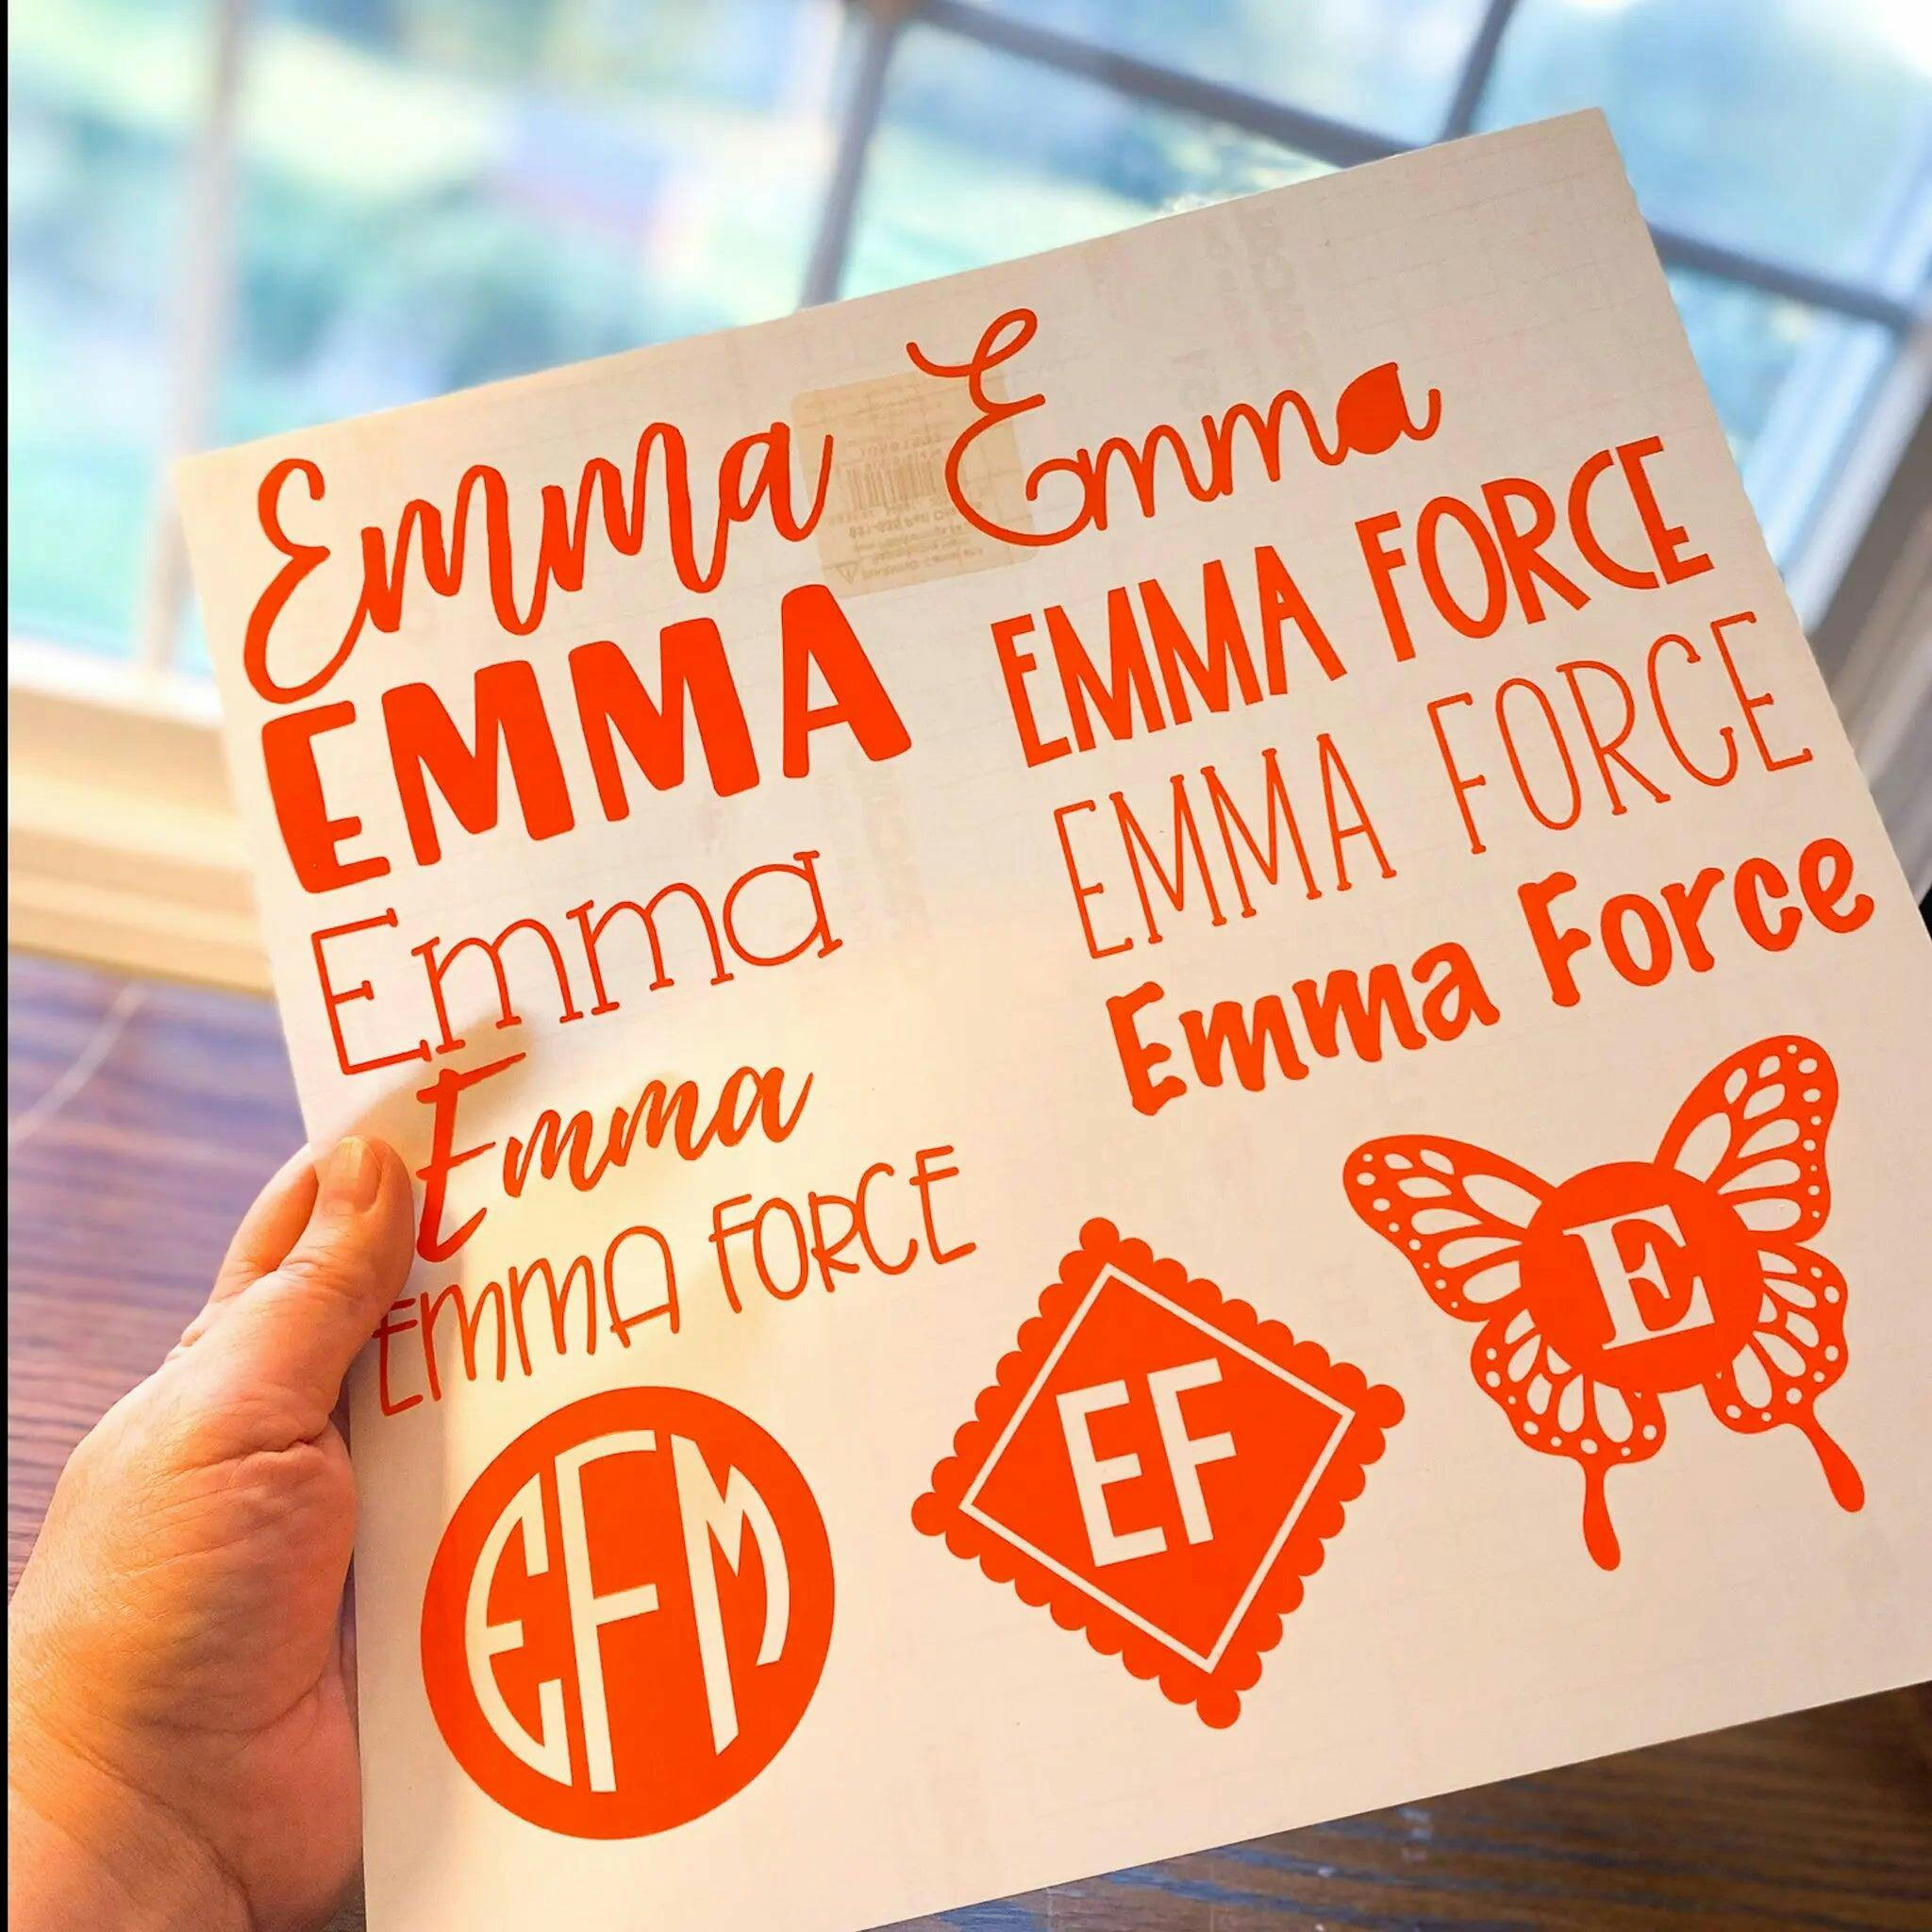 Emma
EMMA
Emma
Emma
EMMA FORCE
EFM
Emma
EMMA FORCE
EMMA FORCE
Emma Force
EF
E